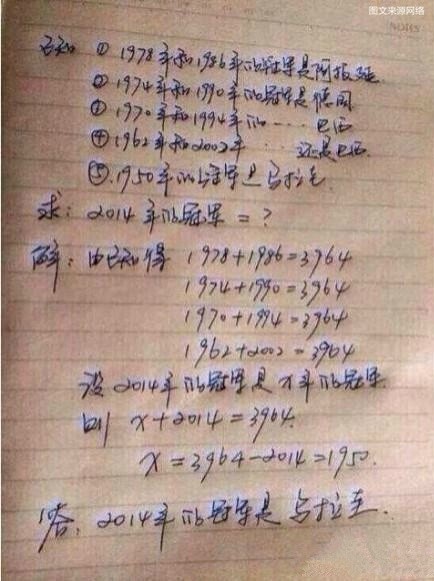 图文来源网络
NOTES
已知 ① 1978年和1986年的冠军是阿根廷
② 1974年和1990年的冠军是德国
③ 1970年和1994年的 ······ 巴西
④ 1962年和2002年 ··· 还是巴西
⑤ 1950年的冠军是乌拉圭
求: 2014年的冠军 = ?
解: 由已知得 1978+1986=3964
1974+1990=3964
1970+1994=3964
1962+2002=3964
设2014年的冠军是x年的冠军
则 x+2014=3964.
x=3964-2014=1950.
答: 2014年的冠军是乌拉圭.